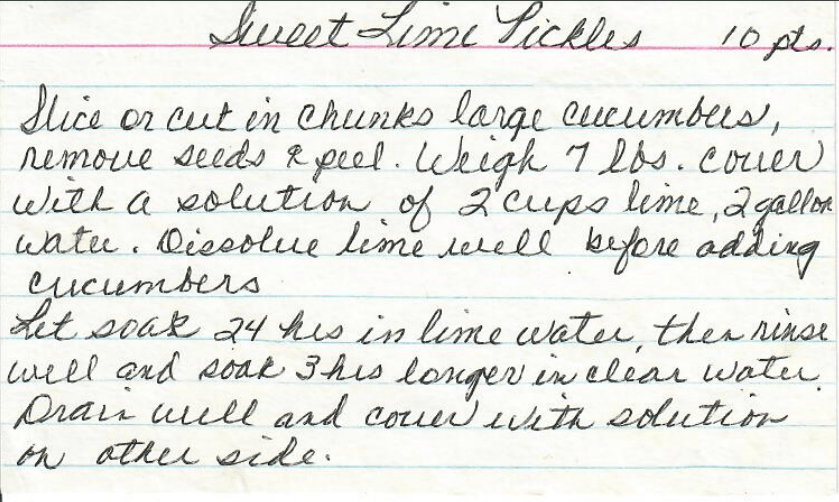 Sweet Lime Pickles 10 pts.
Slice or cut in chunks large cucumbers,
remove seeds & peel. Weigh 7 lbs. cover
with a solution of 2 cups lime, 2 gallon
water. Dissolve lime well before adding
cucumbers
Let soak 24 hrs in lime water, then rinse
well and soak 3 hrs longer in clear water.
Drain well and cover with solution
on other side.